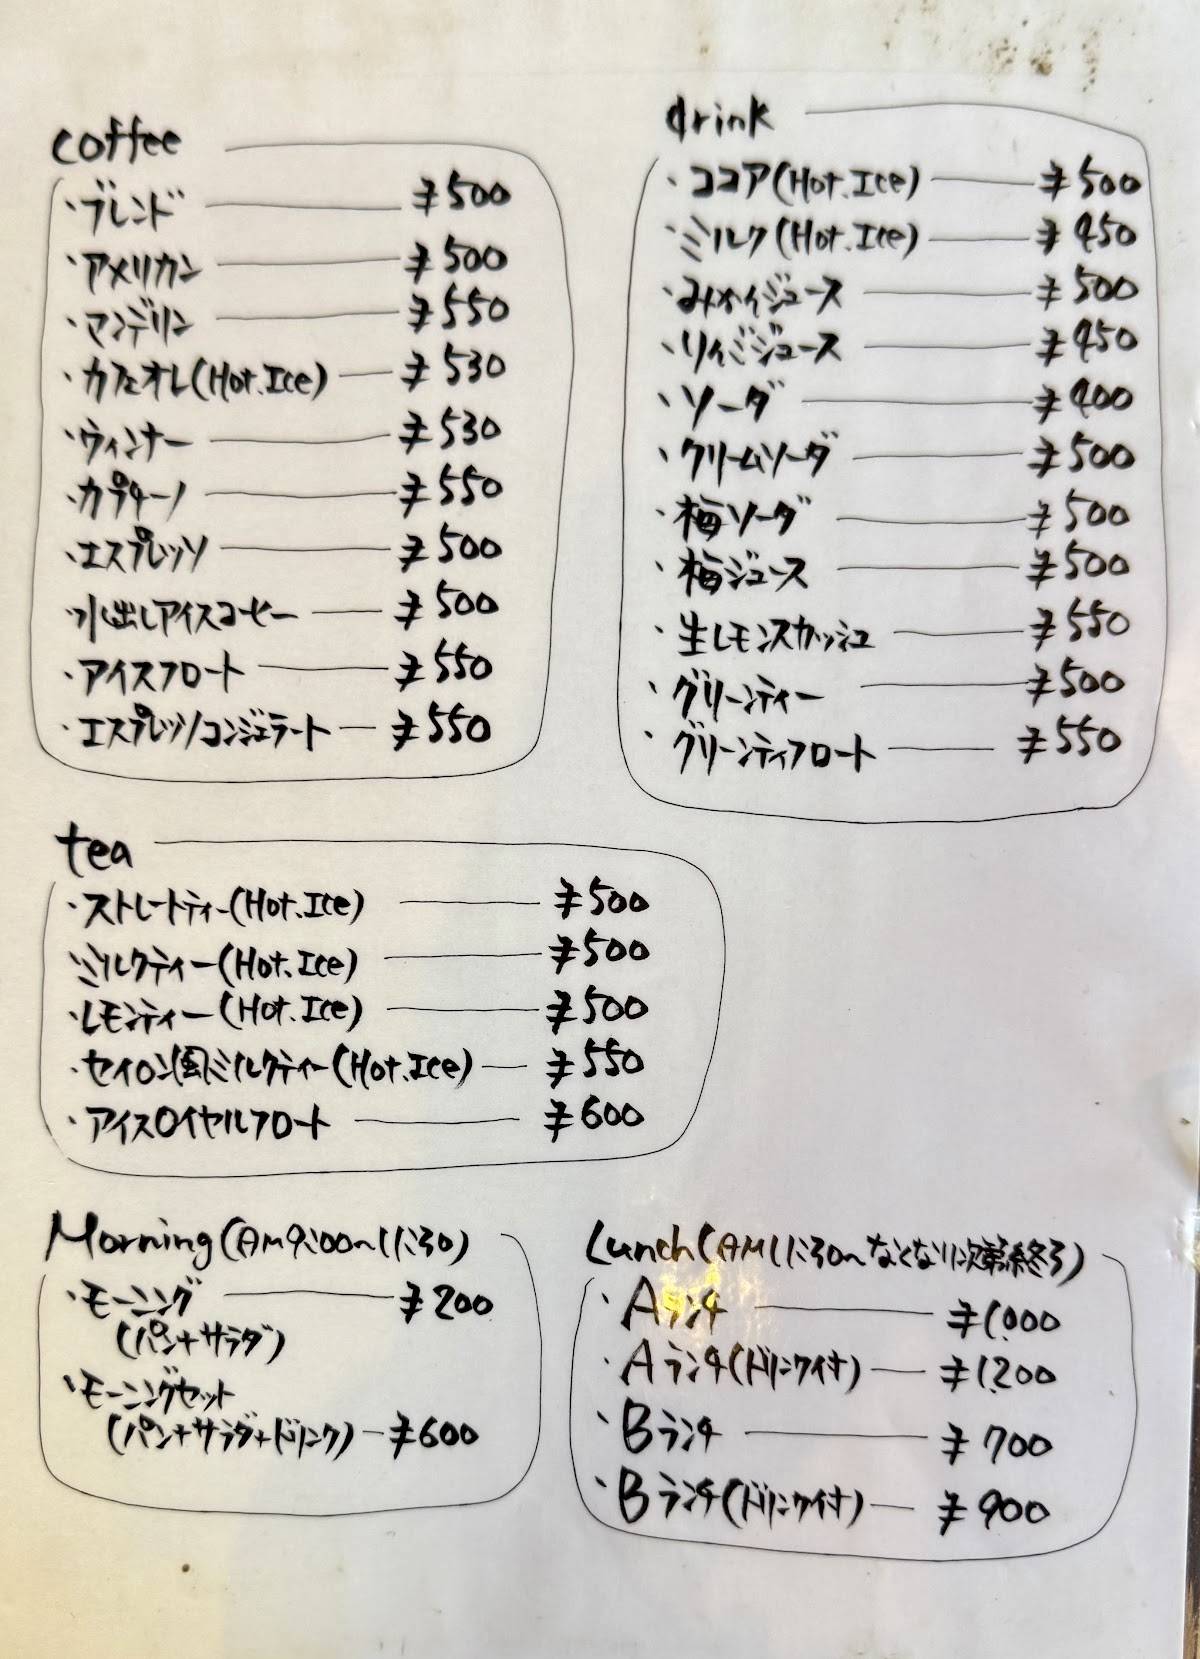 coffee
・ブレンド ¥500
・アメリカン ¥500
・マンデリン ¥550
・カフェオレ(Hot.Ice) ¥530
・ウィンナー ¥530
・カプチーノ ¥550
・エスプレッソ ¥500
・水出しアイスコーヒー ¥500
・アイスフロート ¥550
・エスプレッソコンジェラート ¥550
drink
・ココア(Hot.Ice) ¥500
・ミルク(Hot.Ice) ¥450
・みかんジュース ¥500
・りんごジュース ¥450
・ソーダ ¥400
・クリームソーダ ¥500
・梅ソーダ ¥500
・梅ジュース ¥500
・生レモンスカッシュ ¥550
・グリーンティー ¥500
・グリーンティフロート ¥550
tea
・ストレートティー(Hot.Ice) ¥500
・ミルクティー(Hot.Ice) ¥500
・レモンティー(Hot.Ice) ¥500
・セイロン風ミルクティー(Hot.Ice) ¥550
・アイスロイヤルフロート ¥600
Morning(AM9:00〜11:30)
・モーニング ¥200
(パン+サラダ)
・モーニングセット
(パン+サラダ+ドリンク) ¥600
Lunch(AM11:30〜なくなり次第終了)
・Aランチ ¥1,000
・Aランチ(ドリンク付) ¥1,200
・Bランチ ¥700
・Bランチ(ドリンク付) ¥900